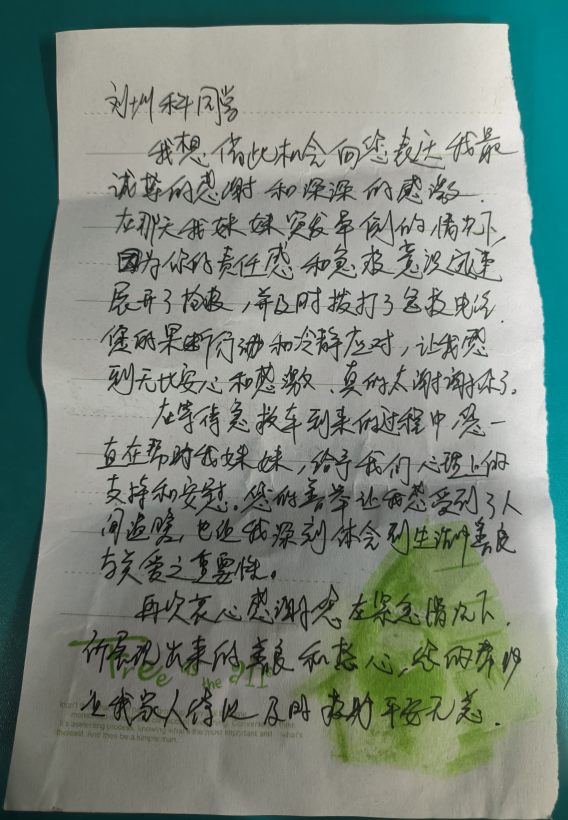 刘圳科同学
我想借此机会向您表达我最
诚挚的感谢和深深的感激.
在那天我妹妹突发晕倒的情况下,
因为你的责任感和急救意识迅速
展开了抢救,并及时拨打了急救电话.
您的果断行动和冷静应对,让我感
到无比安心和感激.真的太谢谢你了.
在等待急救车到来的过程中,您一
直在帮助我妹妹,给予我们心理上的
支持和安慰.您的善举让我感受到了人
间温暖,也让我深刻体会到生活中善良
与关爱之重要性。
再次衷心感谢您在紧急情况下.
所展现出来的善良和热心,您的帮助
让我家人得以及时救助平安无恙.
Tree of the all